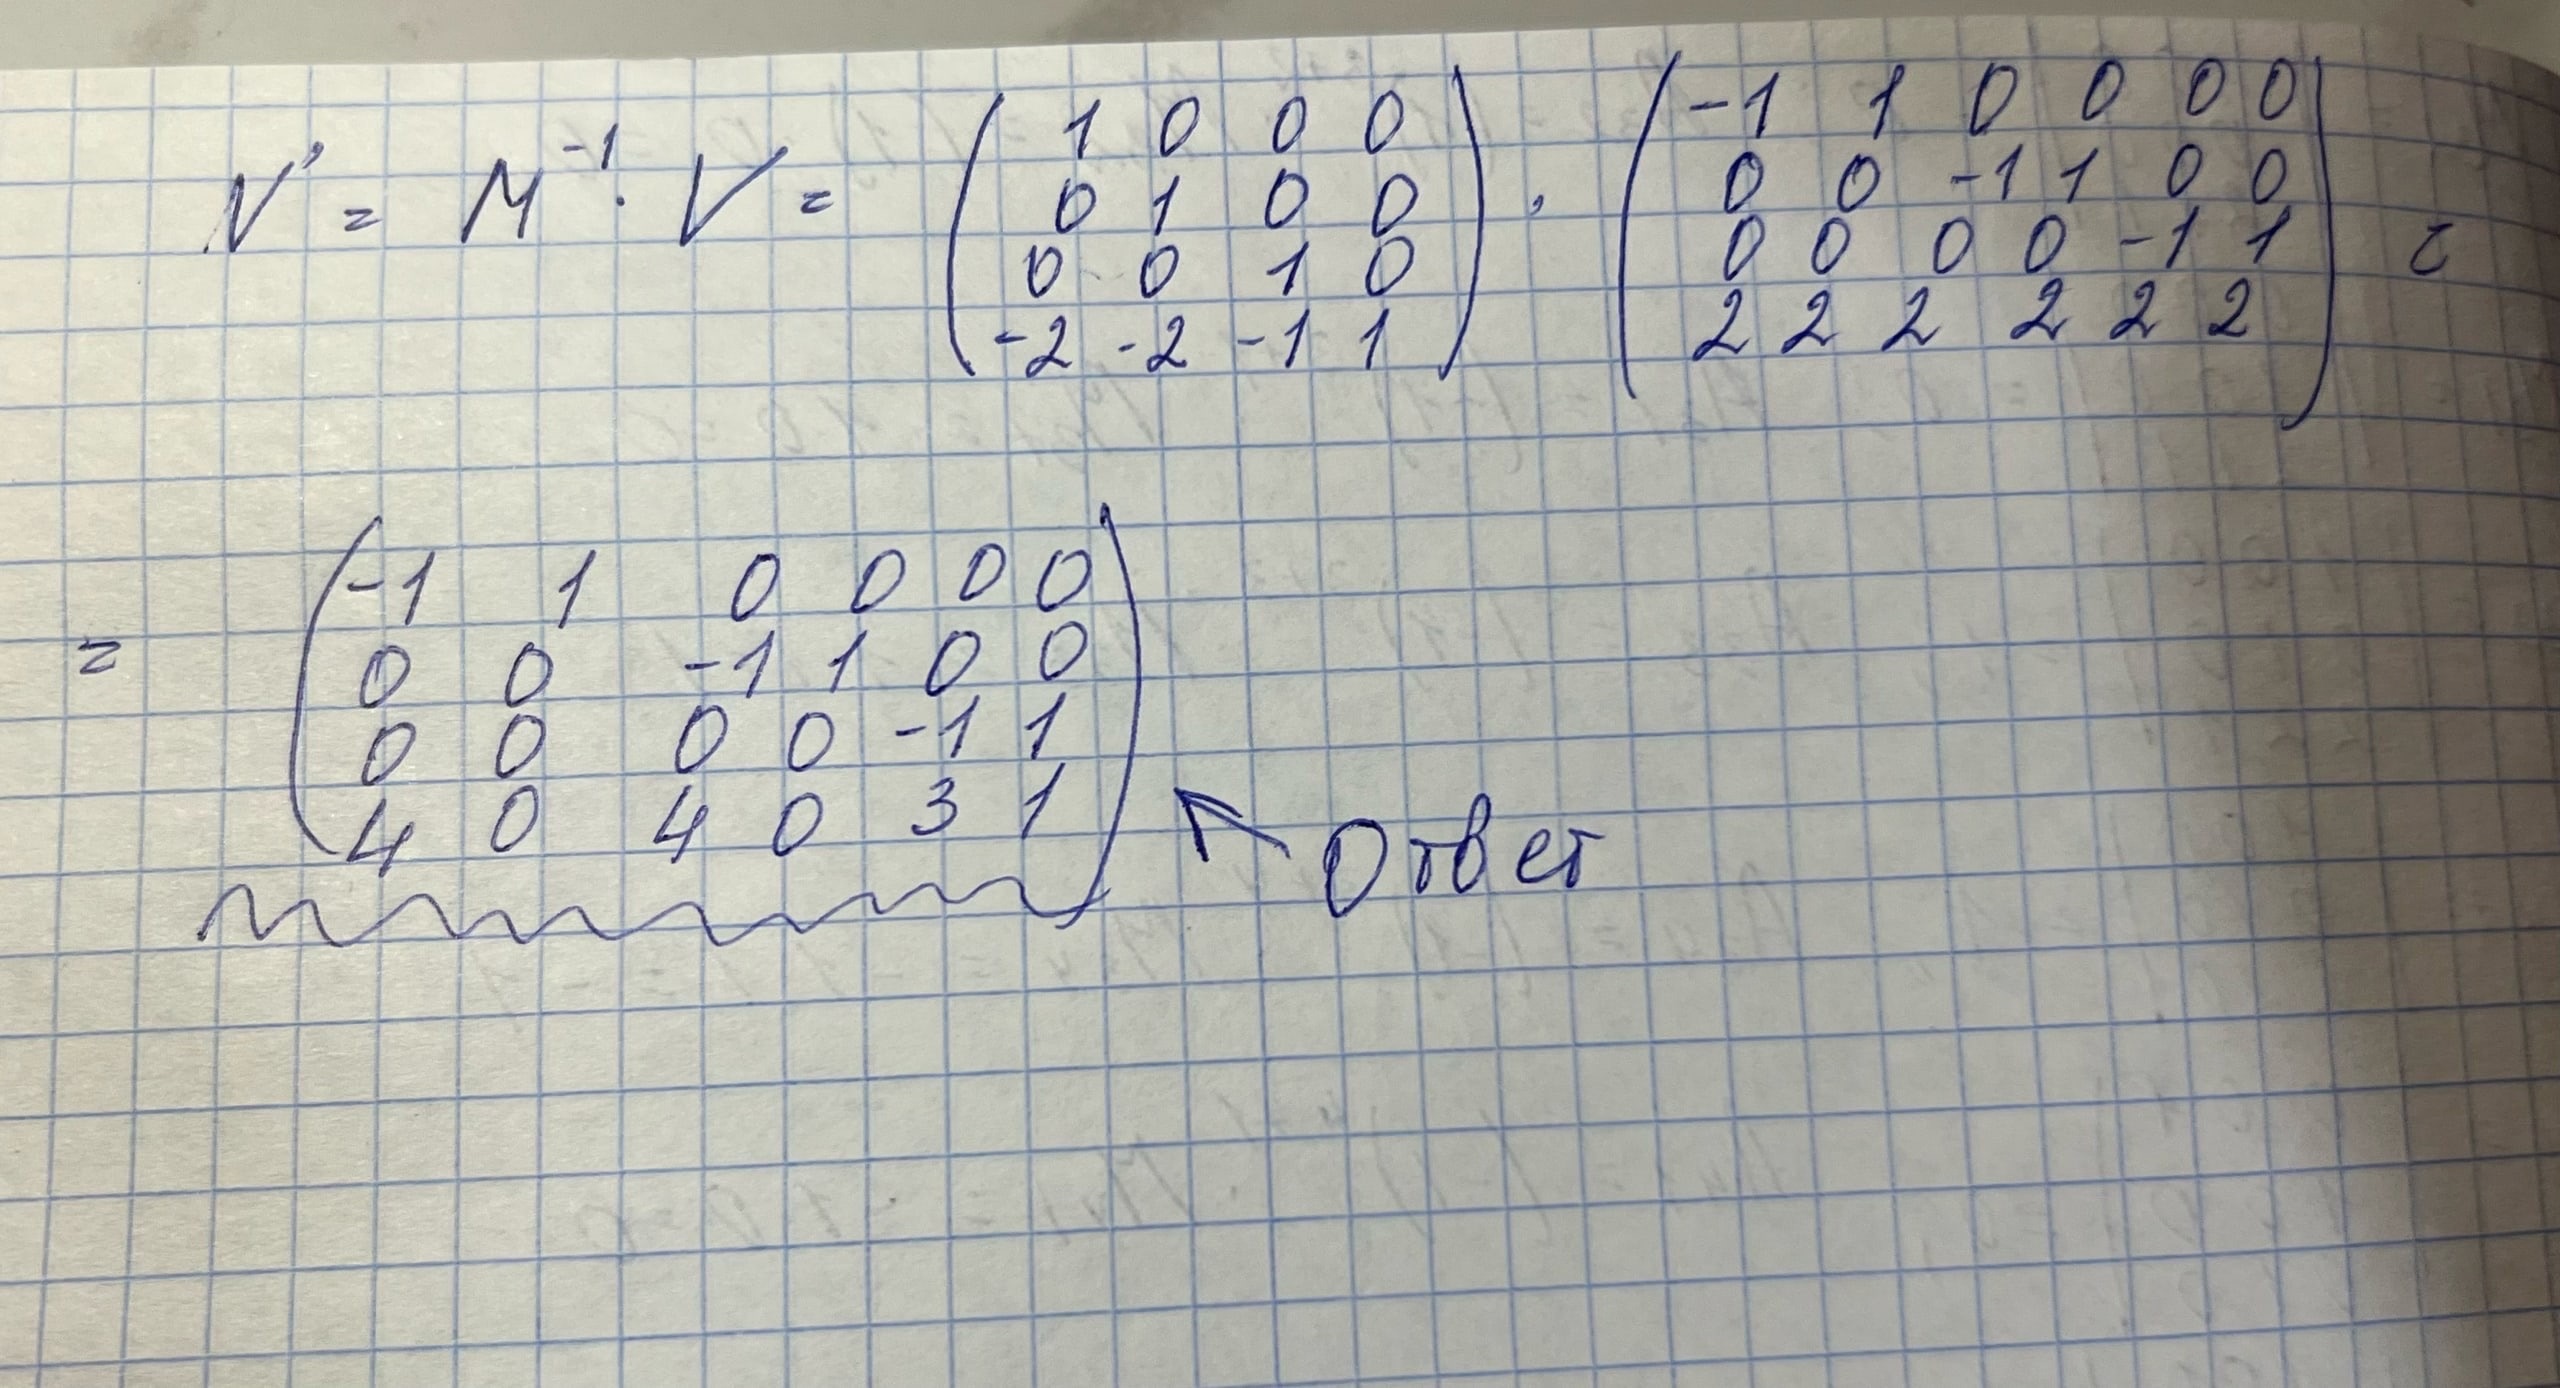 V' = M⁻¹ · V = (1 0 0 0 · (-1 1 0 0 0 0 =
0 1 0 0 0 0 -1 1 0 0
0 0 1 0 0 0 0 0 -1 1
-2 -2 -1 1) 2 2 2 2 2 2)
= (-1 1 0 0 0 0
0 0 -1 1 0 0
0 0 0 0 -1 1
4 0 4 0 3 1) ← Ответ